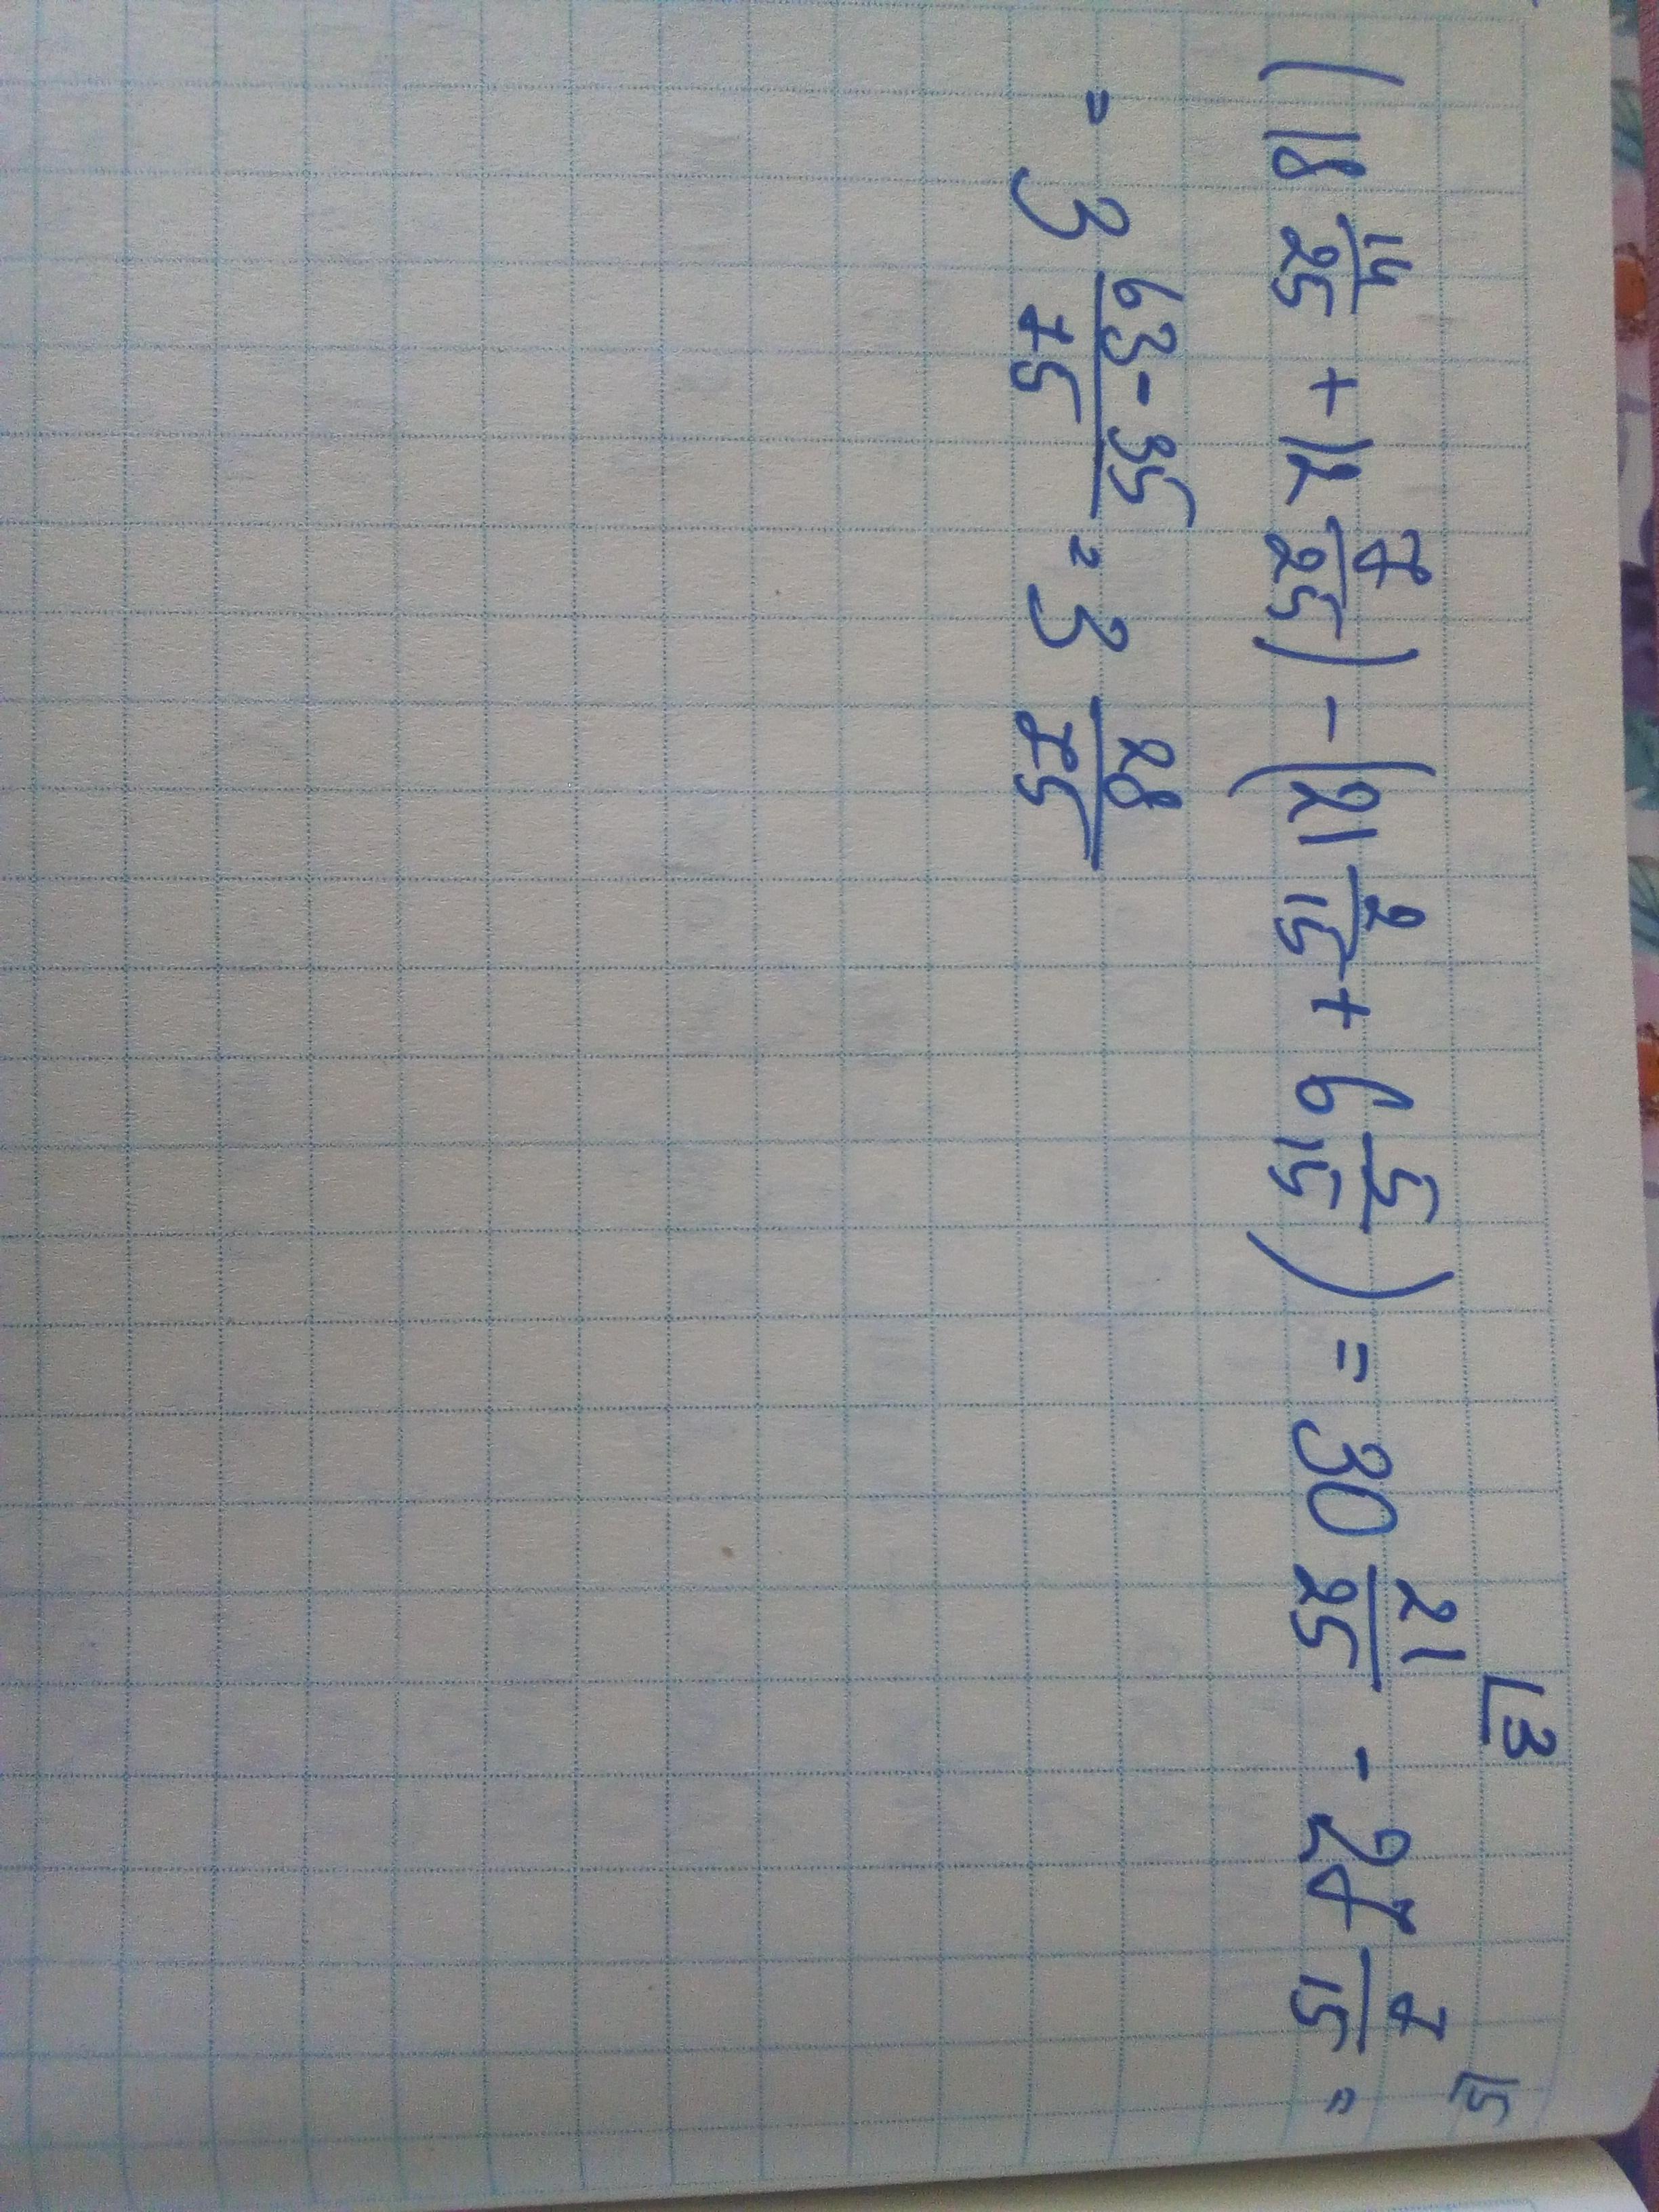 (18 14/25 + 12 7/25) - (21 2/15 + 6 5/15) = 30 21/25 ⌊3 - 27 7/15 ⌊5 =
= 3 63-35/75 = 3 28/75